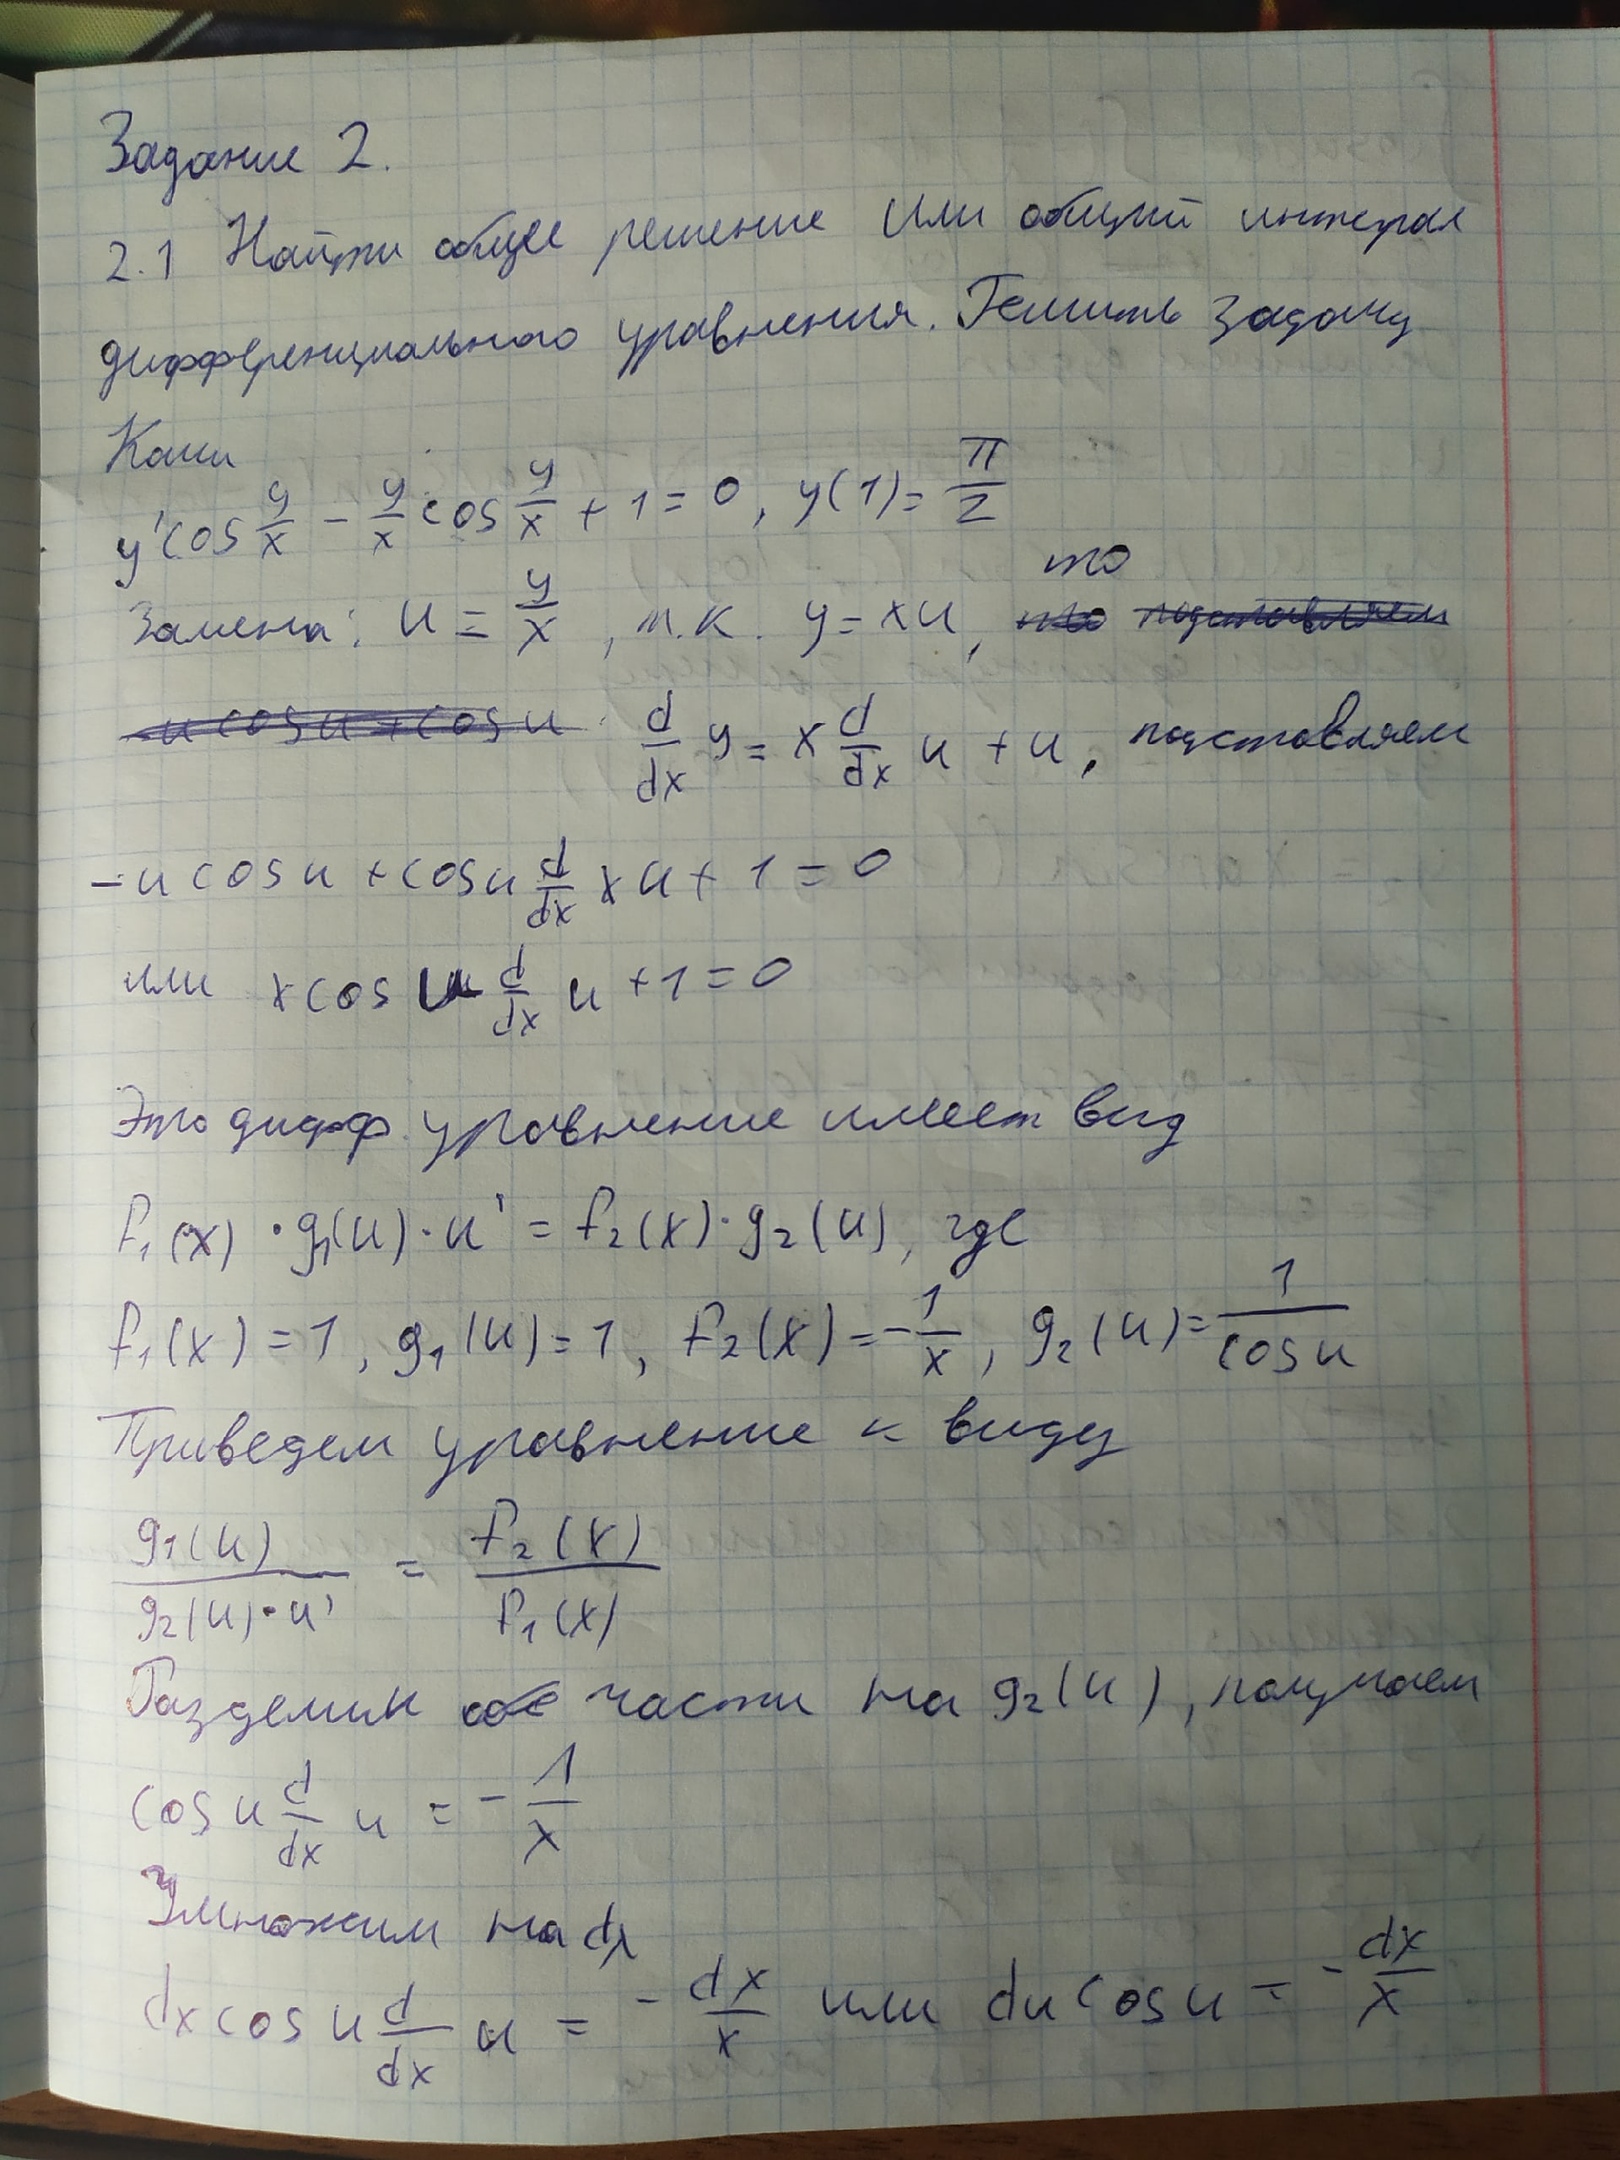 Задание 2.
2.1 Найти общее решение или общий интеграл
дифференциального уравнения. Решить задачу
Коши
y' cos y/x - y/x cos y/x + 1 = 0, y(1) = π/2
Замена: u = y/x, т.к. y = xu, то
d/dx y = x d/dx u + u, подставляем
-u cos u + cos u d/dx x u + 1 = 0
или x cos u d/dx u + 1 = 0
Это дифф. уравнение имеет вид
f₁(x) · g₁(u) · u' = f₂(x) · g₂(u), где
f₁(x) = 1, g₁(u) = 1, f₂(x) = -1/x, g₂(u) = 1/cos u
Приведем уравнение к виду
g₁(u)/g₂(u) · u' = f₂(x)/f₁(x)
Разделим обе части на g₂(u), получаем
cos u d/dx u = -1/x
Умножим на dx
dx cos u d/dx u = -dx/x или du cos u = -dx/x